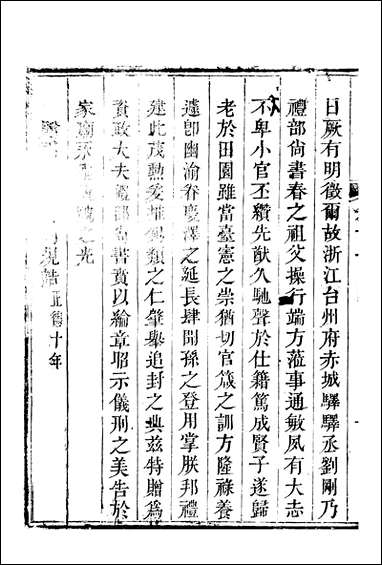 日厥有明徵爾故浙江台州府赤城驛驛丞劉剛乃
禮部尚書春之祖父操行端方蒞事通敏夙有大志
不卑小官丕纘先猷久馳聲於仕籍篤成賢子遂歸
老於田園雖當臺憲之崇猶切官箴之訓方隆祿養
遽卽幽淪眷慶澤之延長肆聞孫之登用掌朕邦禮
建此茂勲爰推之仁肇舉追封之典茲特贈爲
資政大夫禮部尚書賁以綸章昭示儀刑之美告於
家廟永之光
誥正德十年